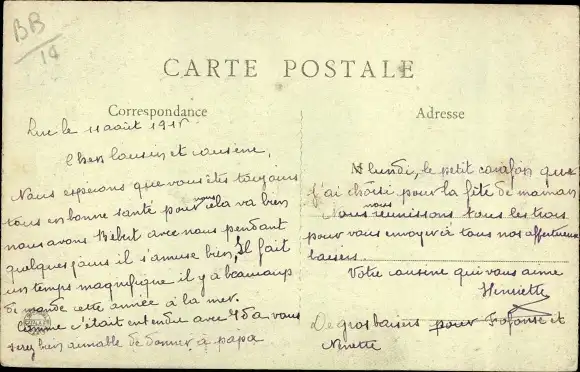 BB
14
CARTE POSTALE
Correspondance
Adresse
Luc le 11 août 191
Cher cousin et cousine,
Nous espérons que vous êtes toujours
tous en bonne santé pour nous cela va bien
nous avons Bébert avec nous pendant
quelques jours il s'amuse bien, Il fait
un temps magnifique il y a beaucoup
de monde cette année à la mer.
Comme c'était entendu avec Ida vous
serez bien aimable de donner à papa
lundi, le petit carafon que
j'ai choisi pour la fête de maman
Nous nous réunissons tous les trois
pour vous envoyer à tous nos affectueux
baisers.
Votre cousine qui vous aime
Henriette
De gros baisers pour Fofonse et
Ninette